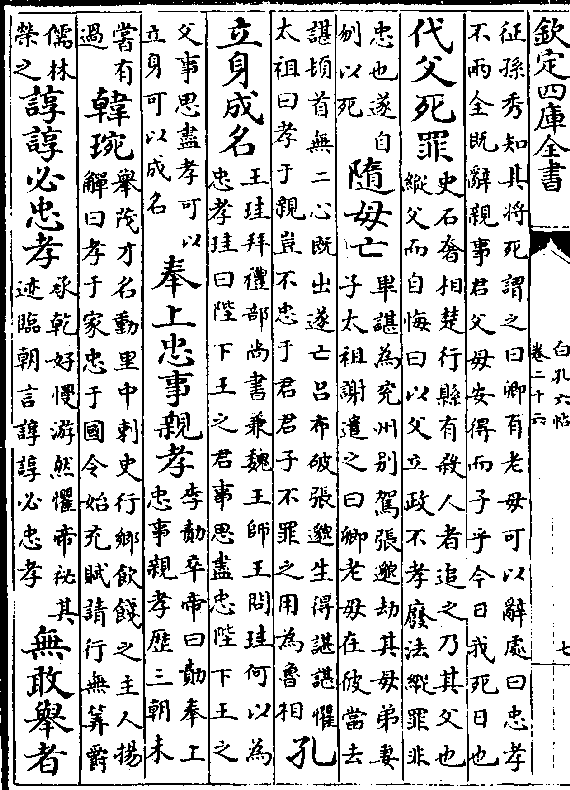 欽定四庫全書
白孔六帖
卷二十六
七
征孫秀知其將死謂之曰卿有老母可以辭處曰忠孝
不兩全既辭親事君父母安得而子乎今日我死日也
代父死罪
史石奢相楚行縣有殺人者追之乃其父也
縱父而自悔曰以父立政不孝廢法縱罪非
忠也遂自
刎以死
隨母亡
畢諶為兖州別駕張邈劫其母弟妻
子太祖謝遣之曰卿老母在彼當去
諶頓首無二心既出遂亡呂布破張邈生得諶諶懼
太祖曰孝于親豈不忠于君君子不罪之用為魯相
孔
立身成名
王珪拜禮部尚書兼魏王師王問珪何以為
忠孝珪曰陛下王之君事思盡忠陛下王之
父事思盡孝可以
立身可以成名
奉上忠事親孝
李勣卒帝曰勣奉上
忠事親孝歷三朝未
嘗有
過
韓琬
舉茂才名動里中刺史行鄉飲餞之主人揚
觶曰孝于家忠于國令始充賦請行無筭爵
儒林
榮之
諄諄必忠孝
承乾好慢游然懼帝祕其
迹臨朝言諄諄必忠孝
無敢舉者